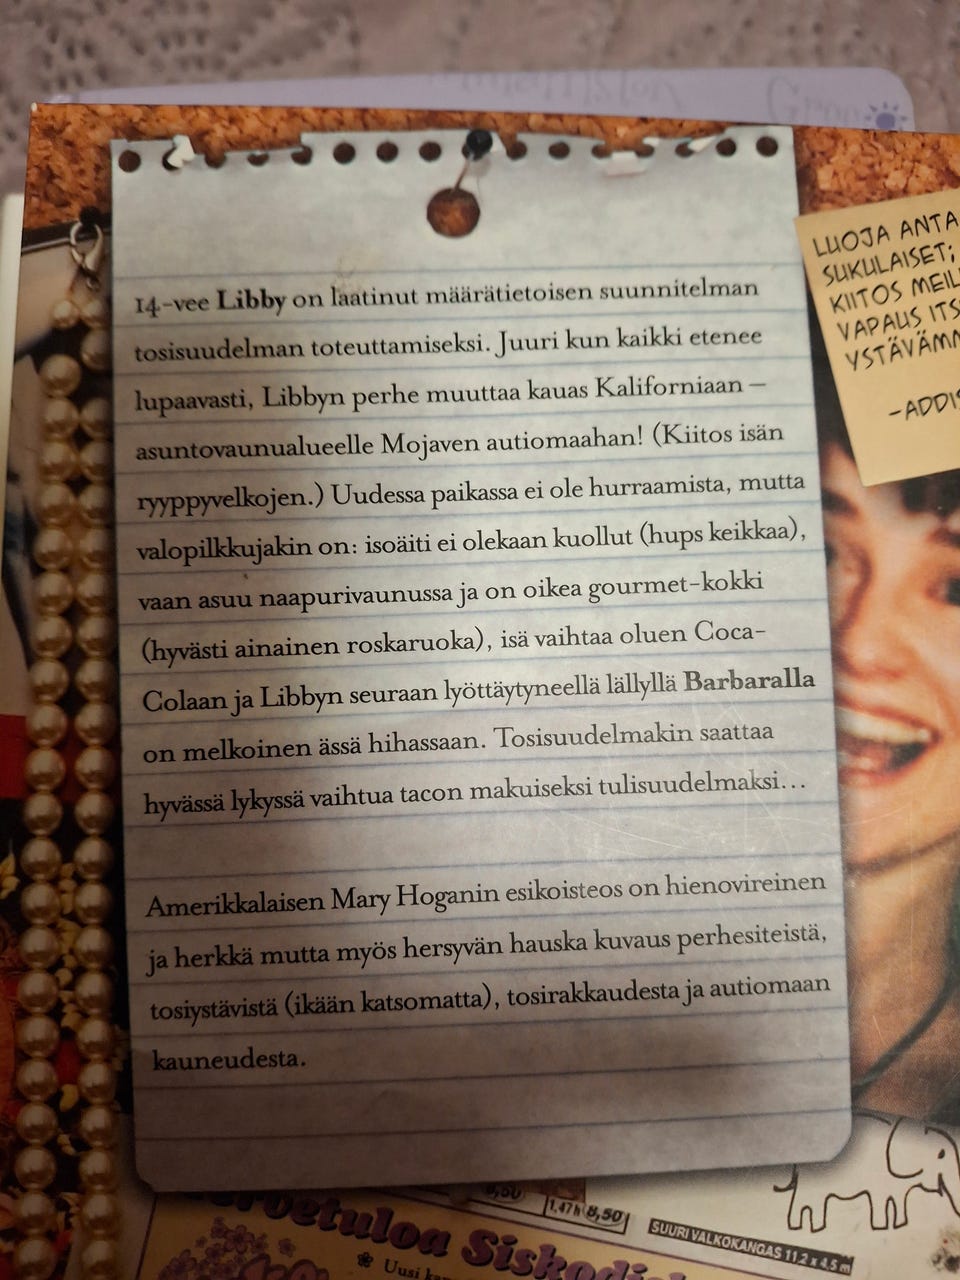 14-vee Libby on laatinut määrätietoisen suunnitelman
tosisuudelman toteuttamiseksi. Juuri kun kaikki etenee
lupaavasti, Libbyn perhe muuttaa kauas Kaliforniaan –
asuntovaunualueelle Mojaven autiomaahan! (Kiitos isän
ryyppyvelkojen.) Uudessa paikassa ei ole hurraamista, mutta
valopilkkujakin on: isoäiti ei olekaan kuollut (hups keikkaa),
vaan asuu naapurivaunussa ja on oikea gourmet-kokki
(hyvästi ainainen roskaruoka), isä vaihtaa oluen Coca-
Colaan ja Libbyn seuraan lyöttäytyneellä lällyllä Barbaralla
on melkoinen ässä hihassaan. Tosisuudelmakin saattaa
hyvässä lykyssä vaihtua tacon makuiseksi tulisuudelmaksi...
Amerikkalaisen Mary Hoganin esikoisteos on hienovireinen
ja herkkä mutta myös hersyvän hauska kuvaus perhesiteistä,
tosiystävistä (ikään katsomatta), tosirakkaudesta ja autiomaan
kauneudesta.
LUOJA ANTA
SUKULAISET;
KIITOS MEIL
VAPAUS ITS
YSTÄVÄMM
-ADDIS
8,50
1,47 h 8,50
SUURI VALKOKANGAS 11,2 x 4,5 m
Uusi